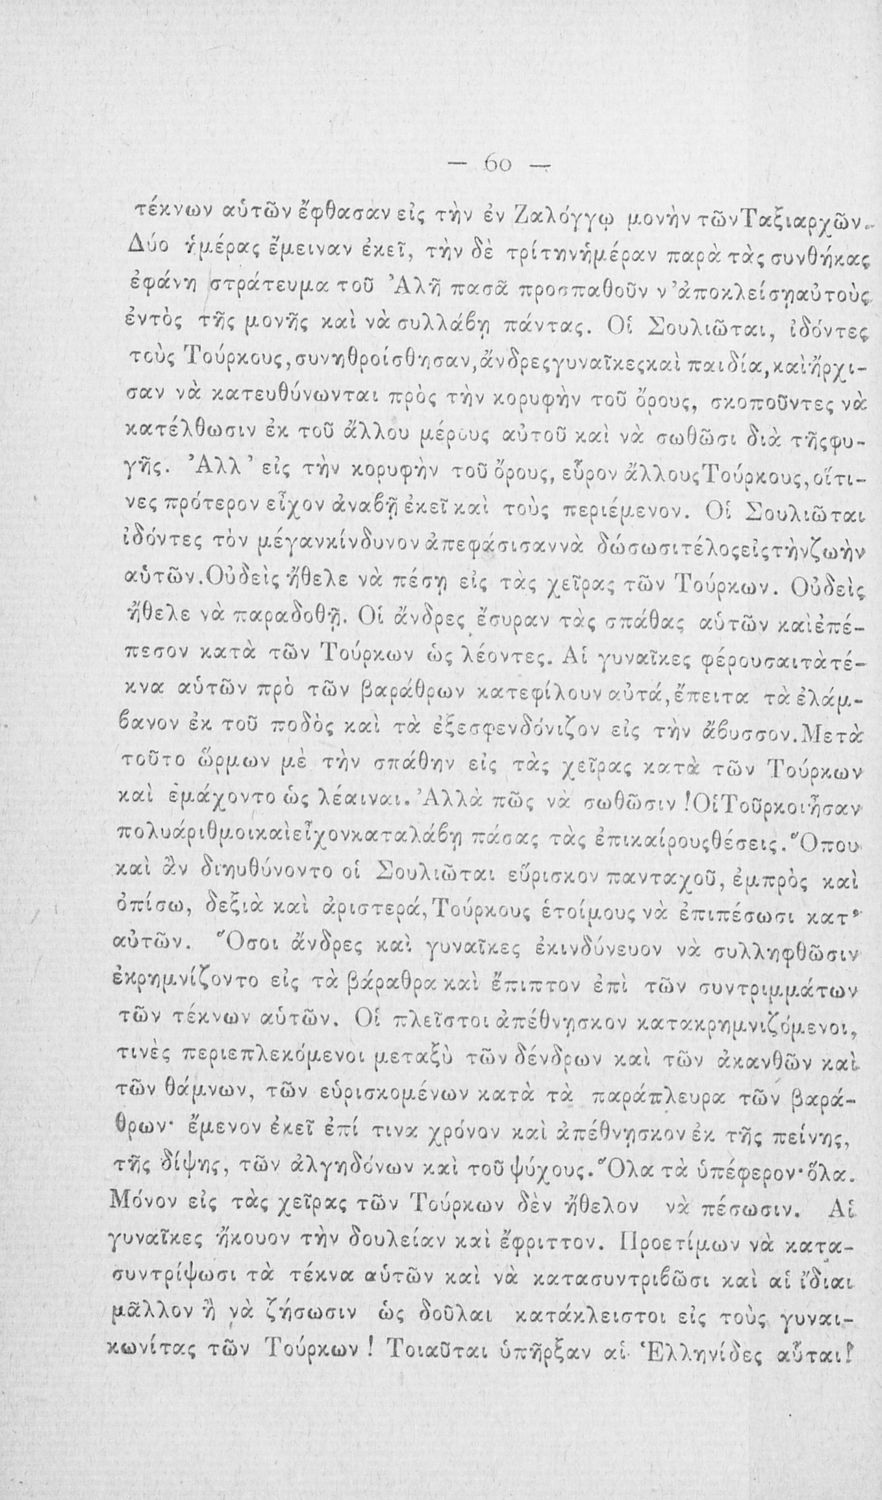 — 60 —
τέκνων αὑτῶν ἔφθασαν εἰς τὴν ἐν Ζαλόγγῳ μονὴν τῶν Ταξιαρχῶν.
Δύο ἡμέρας ἔμειναν ἐκεῖ, τὴν δὲ τρίτην ἡμέραν παρὰ τὰς συνθήκας
ἐφάνη στράτευμα τοῦ Ἀλῆ πασᾶ προσπαθοῦν ν' ἀποκλείσῃ αὐτοὺς
ἐντὸς τῆς μονῆς καὶ νὰ συλλάβῃ πάντας. Οἱ Σουλιῶται, ἰδόντες
τοὺς Τούρκους, συνηθροίσθησαν, ἄνδρες γυναῖκες καὶ παιδία, καὶ ἤρχι-
σαν νὰ κατευθύνωνται πρὸς τὴν κορυφὴν τοῦ ὄρους, σκοποῦντες νὰ
κατέλθωσιν ἐκ τοῦ ἄλλου μέρους αὐτοῦ καὶ νὰ σωθῶσι διὰ τῆς φυ-
γῆς. Ἀλλ' εἰς τὴν κορυφὴν τοῦ ὄρους, εὗρον ἄλλους Τούρκους, οἵτι-
νες πρότερον εἶχον ἀναβῇ ἐκεῖ καὶ τοὺς περιέμενον. Οἱ Σουλιῶται
ἰδόντες τὸν μέγαν κίνδυνον ἀπεφάσισαν νὰ δώσωσι τέλος εἰς τὴν ζωὴν
αὑτῶν. Οὐδεὶς ἤθελε νὰ πέσῃ εἰς τὰς χεῖρας τῶν Τούρκων. Οὐδεὶς
ἤθελε νὰ παραδοθῇ. Οἱ ἄνδρες ἔσυραν τὰς σπάθας αὑτῶν καὶ ἐπέ-
πεσον κατὰ τῶν Τούρκων ὡς λέοντες. Αἱ γυναῖκες φέρουσαι τὰ τέ-
κνα αὑτῶν πρὸ τῶν βαράθρων κατεφίλουν αὐτά, ἔπειτα τὰ ἐλάμ-
βανον ἐκ τοῦ ποδὸς καὶ τὰ ἐξεσφενδόνιζον εἰς τὴν ἄβυσσον. Μετὰ
τοῦτο ὥρμων μὲ τὴν σπάθην εἰς τὰς χεῖρας κατὰ τῶν Τούρκων
καὶ ἐμάχοντο ὡς λέαιναι. Ἀλλὰ πῶς νὰ σωθῶσιν! Οἱ Τοῦρκοι ἦσαν
πολυάριθμοι καὶ εἶχον καταλάβῃ πάσας τὰς ἐπικαίρους θέσεις. Ὅπου
καὶ ἂν διηυθύνοντο οἱ Σουλιῶται εὕρισκον πανταχοῦ, ἐμπρὸς καὶ
ὀπίσω, δεξιὰ καὶ ἀριστερά, Τούρκους ἑτοίμους νὰ ἐπιπέσωσι κατ'
αὐτῶν. Ὅσοι ἄνδρες καὶ γυναῖκες ἐκινδύνευον νὰ συλληφθῶσιν
ἐκρημνίζοντο εἰς τὰ βάραθρα καὶ ἔπιπτον ἐπὶ τῶν συντριμμάτων
τῶν τέκνων αὑτῶν. Οἱ πλεῖστοι ἀπέθνησκον κατακρημνιζόμενοι,
τινὲς περιεπλεκόμενοι μεταξὺ τῶν δένδρων καὶ τῶν ἀκανθῶν καὶ
τῶν θάμνων, τῶν εὑρισκομένων κατὰ τὰ παράπλευρα τῶν βαρά-
θρων· ἔμενον ἐκεῖ ἐπί τινα χρόνον καὶ ἀπέθνησκον ἐκ τῆς πείνης,
τῆς δίψης, τῶν ἀλγηδόνων καὶ τοῦ ψύχους. Ὅλα τὰ ὑπέφερον· ὅλα.
Μόνον εἰς τὰς χεῖρας τῶν Τούρκων δὲν ἤθελον νὰ πέσωσιν. Αἱ
γυναῖκες ἤκουον τὴν δουλείαν καὶ ἔφριττον. Προετίμων νὰ κατα-
συντρίψωσι τὰ τέκνα αὑτῶν καὶ νὰ κατασυντριβῶσι καὶ αἱ ἴδιαι
μᾶλλον ἢ νὰ ζήσωσιν ὡς δοῦλαι κατάκλειστοι εἰς τοὺς γυναι-
κωνίτας τῶν Τούρκων! Τοιαῦται ὑπῆρξαν αἱ Ἑλληνίδες αὗται!